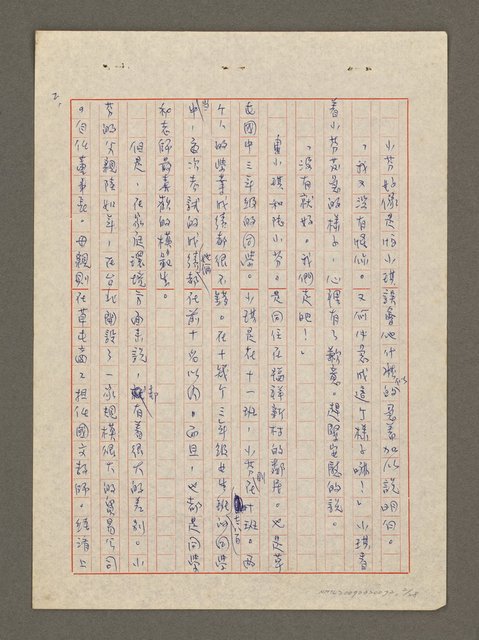 2.
小芬好像是怕小琪誤會他什麼似的急著加以說明白。
「我又沒有恨你。又何必急成這个樣子嘛!」小琪看
着小芬焦急的樣子,心裡有了歉意。趕緊安慰的說。
「沒有就好。我們走吧!」
小琪和陸小芬。是同住在福祥新村的鄰居。也是草
屯國中三年級的同學。小琪是在十一班,小芬則在廿班。兩
个人的學業成績都很不錯。在十幾个三年級女生班七六百同學
當中,每次考試的成績她倆都在前十名以內。而且,也都是同學
和老師最喜歡的模範生。
但是,在家庭環境方面來說,却有着很大的差別。小
芬的父親陸如年,在台北開設了一家規模很大的貿易公司
。自任董事長。母親則在草屯商工担任國文教師。經濟上
NMTL20090020090